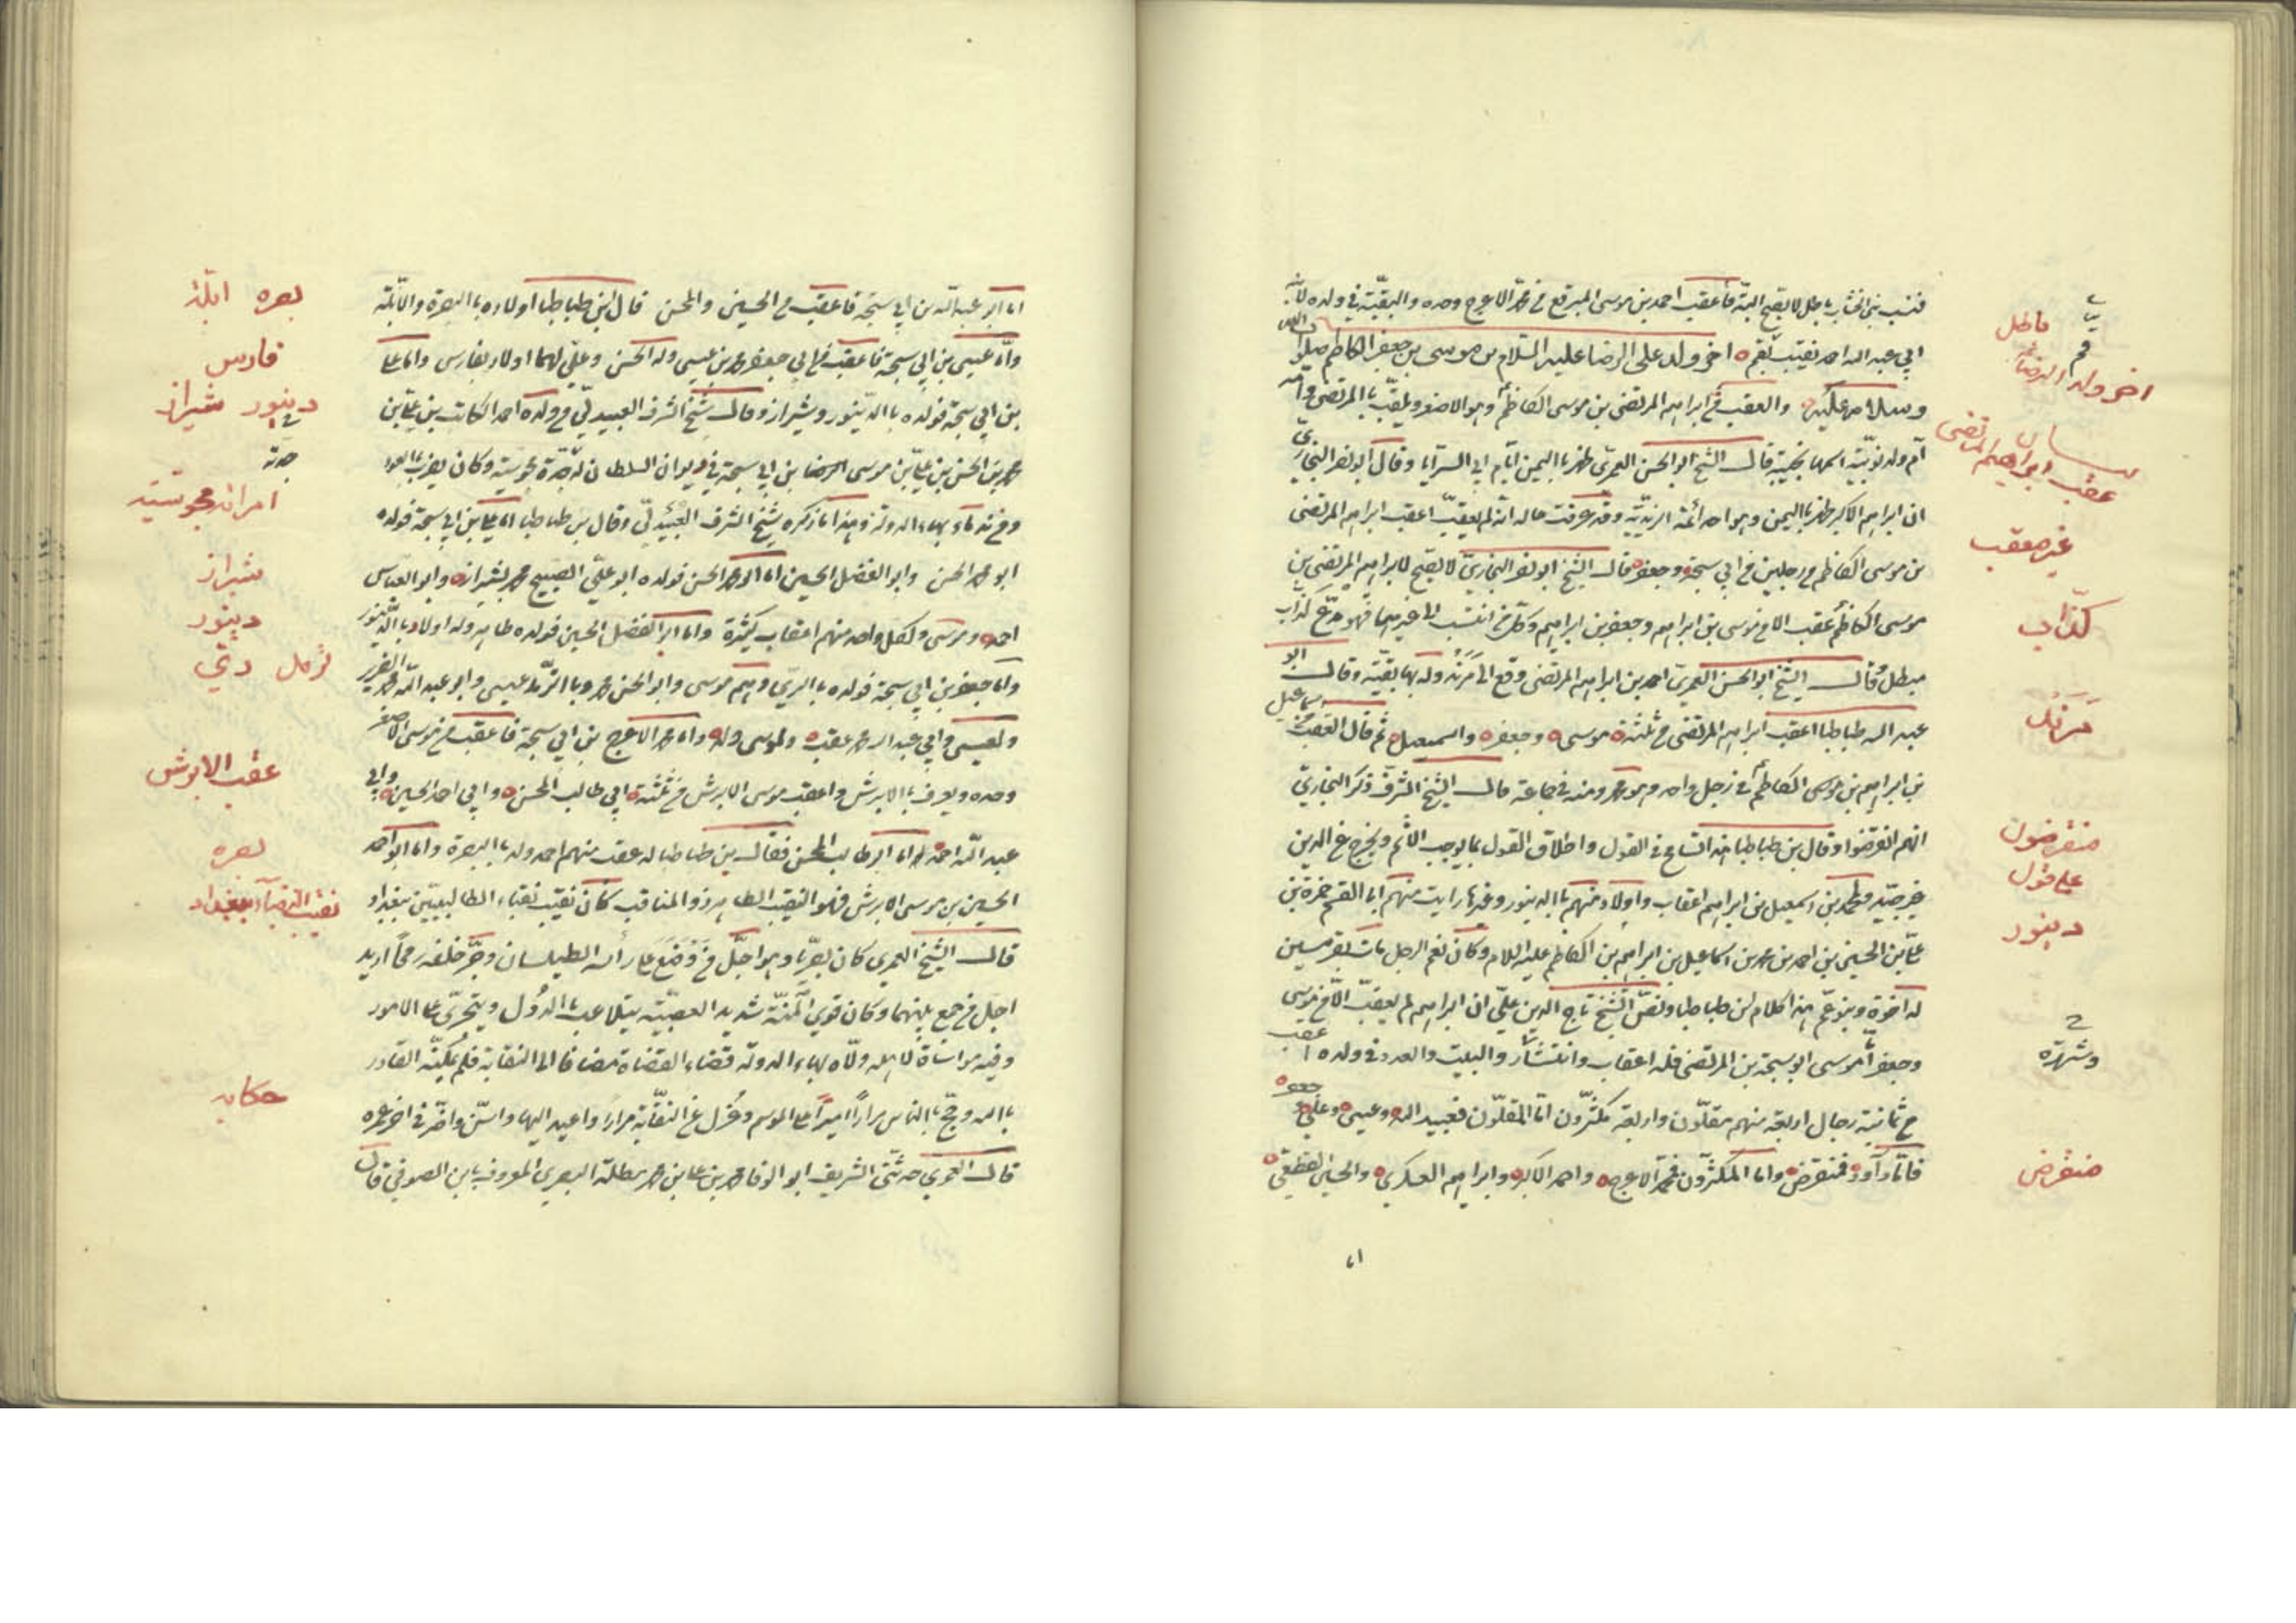 فنسب بني الخشاب باطل لا يصح البتة فأعقب احمد بن موسى المبرقع من محمد الاعرج وحده والبقية في ولده لابنه
ابي عبد الله احمد نقيب قم اخر ولد علي الرضا عليه السلام بن موسى بن جعفر الكاظم صلوات الله
وسلامه عليهم والعقب من ابراهيم المرتضى بن موسى الكاظم وهو الاصغر ويلقب بالمرتضى وامه
ام ولد نوبية اسمها نجيبة قال الشيخ ابو الحسن العمري ظهر باليمن ايام ابي السرايا وقال ابو نصر البخاري
ان ابراهيم الاكبر ظهر باليمن وهو احد ائمة الزيدية وقد عرفت حاله انه لم يعقب اعقب ابراهيم المرتضى
بن موسى الكاظم من رجلين من ابي سبحة وجعفر قال الشيخ ابو نصر البخاري لا يصح لابراهيم المرتضى بن
موسى الكاظم عقب الا من موسى بن ابراهيم وجعفر بن ابراهيم وكل من انتسب الى غيرهما فهو مدع كذاب
مبطل وقال الشيخ ابو الحسن العمري احمد بن ابراهيم المرتضى وقع الى مرند وله بها بقية وقال ابو
عبد الله طباطبا اعقب ابراهيم المرتضى من ثلثة موسى وجعفر واسمعيل ثم قال العقب من اسماعيل
بن ابراهيم بن موسى الكاظم في رجل واحد وهو محمد ومنه في جماعة قال الشيخ الشرف ذكر البخاري
انهم انقرضوا وقال بن طباطبا هذا اتساع في القول واطلاق القول بما يوجب الاثم ويخرج عن الدين
غير جيد ولمحمد بن اسمعيل بن ابراهيم اعقاب واولاد منهم بالدينور وغيرها رايت منهم ابا القسم حمزة بن
علي بن الحسين بن احمد بن محمد بن اسماعيل بن ابراهيم بن الكاظم عليه السلام وكان نعم الرجل مات بقرميسين
له اخوة وبنو عم هذا كلام بن طباطبا ونص الشيخ تاج الدين على ان ابراهيم لم يعقب الا من موسى
وجعفر اما موسى ابو سبحة بن المرتضى فله اعقاب وانتشار والبيت والعدد في ولده اعقب
من ثمانية رجال اربعة منهم مقلون واربعة مكثرون اما المقلون فعبيد الله وعيسى وعلي وجعفر
فاما داود فمنقرض واما المكثرون فمحمد الاعرج واحمد الاكبر وابراهيم العسكري والحسين القطعي
اما
باطل
قم
اخر ولد الرضا
عقب ابراهيم المرتضى
غير معقب
كذاب
مرند
منقرضون
على قول
دينور
وشهرة
منقرض
اما ابو عبد الله بن ابي سبحة فاعقب من الحسين والمحسن قال ابن طباطبا اولاده بالبصرة والابلة
واما عيسى بن ابي سبحة فاعقب من ابي جعفر محمد بن عيسى وله الحسن وعلي لهما اولاد بفارس واما علي
بن ابي سبحة فولده بالدينور وشيراز وقال شيخ الشرف العبيدلي من ولده احمد الكاتب بن علي بن
محمد بن الحسن بن علي بن موسى بن ابي سبحة في ديوان السلطان له جدة مجوسية وكان يضرب بالعود
بهاء الدولة هذا ما ذكره شيخ الشرف العبيدلي وقال بن طباطبا اما علي بن ابي سبحة فولده
ابو محمد الحسن وابو الفضل الحسين اما ابو محمد الحسن فولده ابو علي الصبيح محمد بشيراز وابو العباس
احمد وموسى ولكل واحد منهم اعقاب كثيرة واما ابو الفضل الحسين فولده طاهر وله اولاد بالدينور
واما جعفر بن ابي سبحة فولده بالري وهم موسى وابو الحسن محمد وبالترمذ عيسى وابو عبد الله محمد الضرير
ولعيسى وابي عبد الله محمد عقب ولموسى ولد واما محمد الاعرج بن ابي سبحة فاعقب من موسى الاصغر
وحده ويعرف بالابرش واعقب موسى الابرش من ثلثة ابي طالب المحسن وابي احمد الحسين وابي
عبد الله احمد اما ابو طالب المحسن فقال بن طباطبا له عقب منهم احمد ولد بالبصرة واما ابو احمد
الحسين بن موسى الابرش فهو النقيب الطاهر ذو المناقب كان نقيب نقباء الطالبيين ببغداد
قال الشيخ العمري كان بصريا وهو اجل من وضع على راسه الطيلسان وجر خلفه رمحا اريد
اجل من جمع بينهما وكان قوي المنة شديد العصبية يتلاعب بالدول ويتجرى على الامور
وفيه مواساة لاهله ولاه بهاء الدولة قضاء القضاة مضافا الى النقابة فلم يمكنه القادر
بالله وحج بالناس مرارا اميرا على الموسم وعزل عن النقابة مرارا واعيد اليها واسن واضر في اخر عمره
قال العمري حدثني الشريف ابو الوفا محمد بن علي بن محمد ملطة البصري المعروف بابن الصوفي قال
بصره ابلة
فارس
دينور شيراز
جدة
امراة مجوسية
شيراز
دينور
عقب الابرش
بصره
نقيب النقباء ببغداد
حكايه